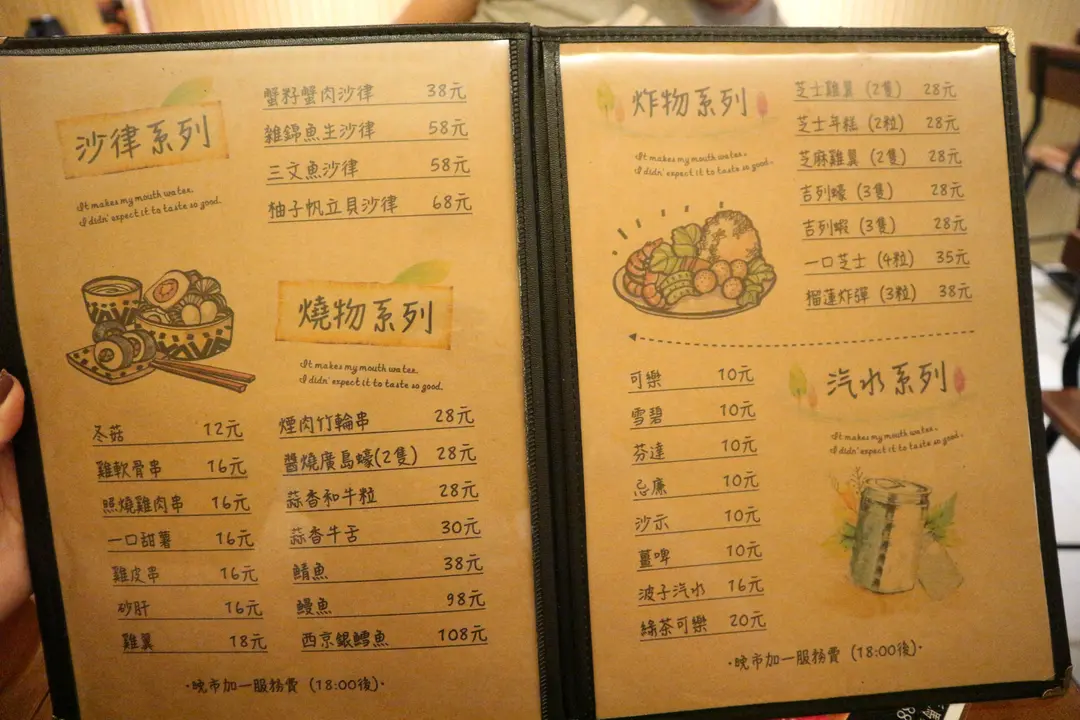 沙律系列
It makes my mouth water.
I didn' expect it to taste so good.
蟹籽蟹肉沙律 38元
雜錦魚生沙律 58元
三文魚沙律 58元
柚子帆立貝沙律 68元
燒物系列
It makes my mouth water.
I didn' expect it to taste so good.
冬菇 12元
雞軟骨串 16元
照燒雞肉串 16元
一口甜薯 16元
雞皮串 16元
砂肝 16元
雞翼 18元
煙肉竹輪串 28元
醬燒廣島蠔(2隻) 28元
蒜香和牛粒 28元
蒜香牛舌 30元
鯖魚 38元
鰻魚 98元
西京銀鱈魚 108元
·晚市加一服務費 (18:00後)·
炸物系列
It makes my mouth water.
I didn' expect it to taste so good.
芝士雞翼 (2隻) 28元
芝士年糕 (2粒) 28元
芝麻雞翼 (2隻) 28元
吉列蠔 (3隻) 28元
吉列蝦 (3隻) 28元
一口芝士 (4粒) 35元
榴蓮炸彈 (3粒) 38元
汽水系列
It makes my mouth water.
I didn' expect it to taste so good.
可樂 10元
雪碧 10元
芬達 10元
忌廉 10元
沙示 10元
薑啤 10元
波子汽水 16元
綠茶可樂 20元
·晚市加一服務費 (18:00後)·